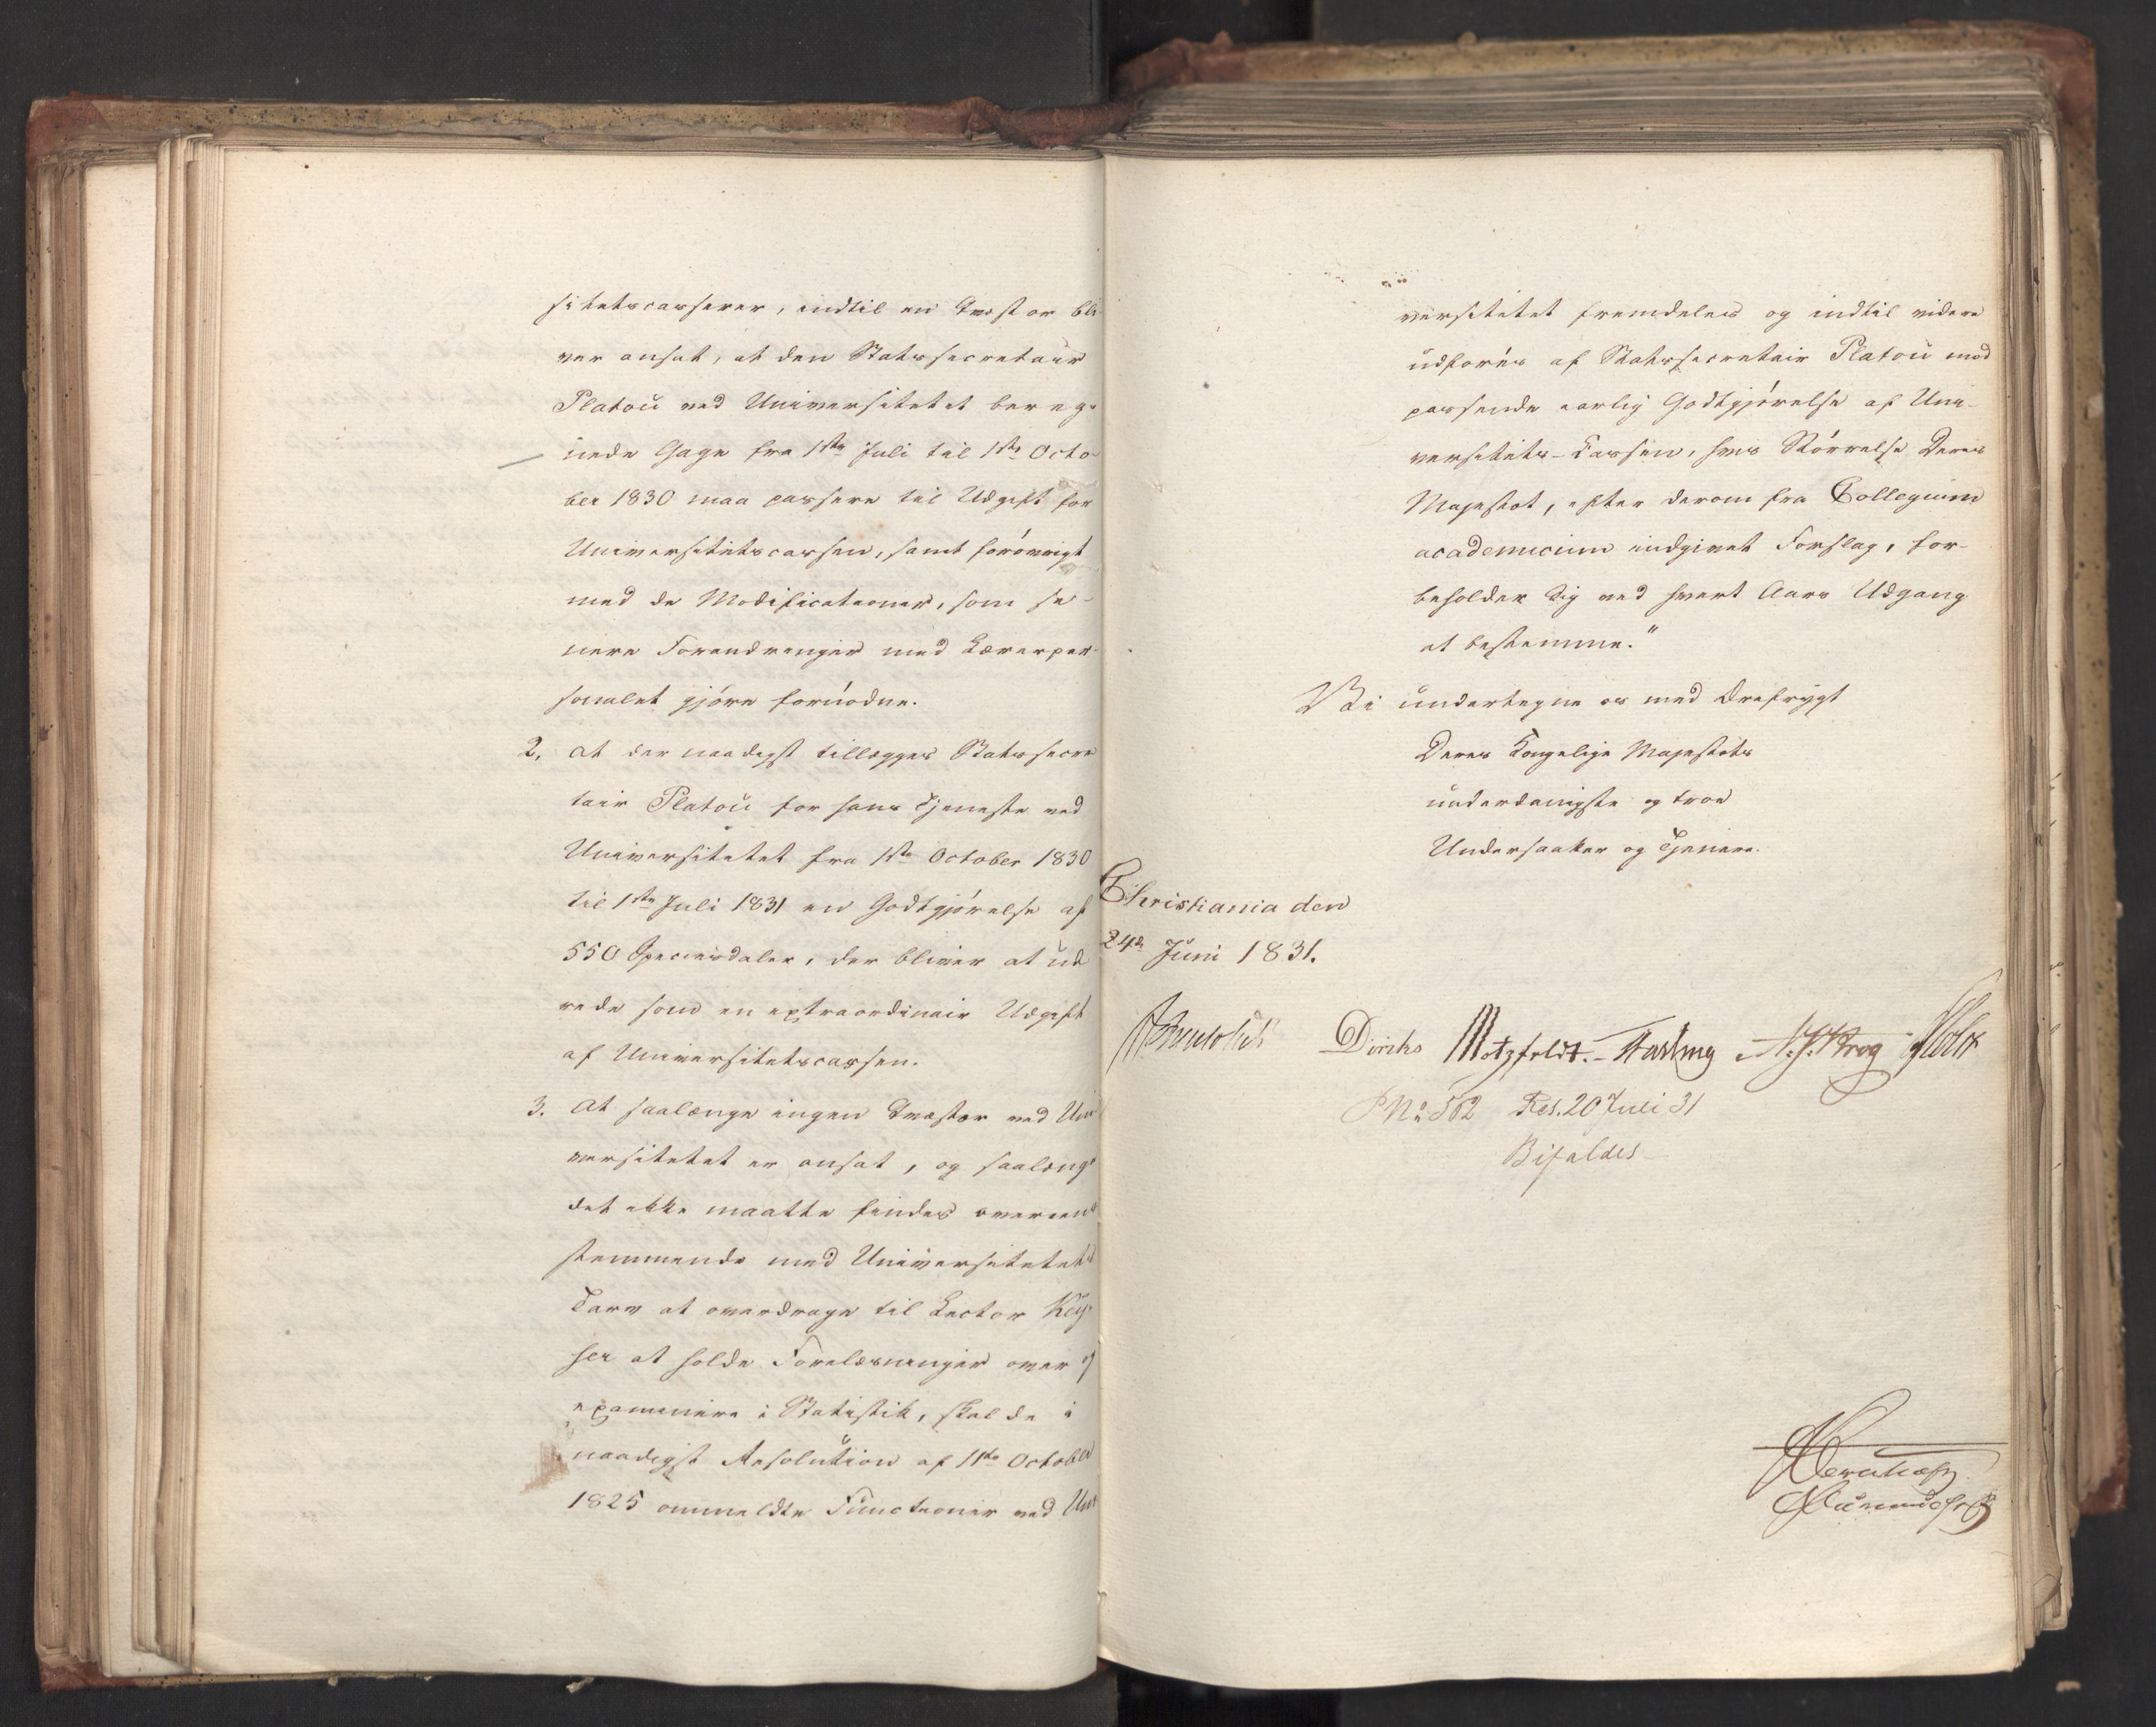 sitetscasserer, indtil en Qvæstor bli-
ver ansat, at den Statssecretair
Platou ved Universitetet bereg-
nede Gage fra 1ste Juli til 1ste Octo-
ber 1830 maa passere til Udgift for
Universitetscassen, samt forøvrigt
med de Modificationer, som se-
nere Forandringer med Lærerper-
sonalet gjøre fornødne.
2. at der naadigst tillægges Statssecre
tair Platou for hans Tjeneste ved
Universitetet fra 1ste October 1830
til 1ste Juli 1831 en Godtgjørelse af
550 Speciesdaler, der bliver at ud
rede som en extraordinair Udgift
af Universitetscassen.
3. At saalænge ingen Qvæstor ved Uni
versitetet er ansat, og saalænge
det ikke maatte findes overeens
stemmende med Universitetets
Tarv at overdrage til Lector Key-
ser at holde Forelæsninger over og
examinere i Statistik, skal de i
naadigst Resolution af 11te October
1825 ommeldte Functioner ved Uni
versitetet fremdeles og indtil videre
udføres af Statssecretair Platou mod
passende aarlig Godtgjørelse af Uni-
versitets-Cassen, hvis Størrelse Deres
Majestæt, efter derom fra Collegium
academicum indgivet Forslag, for-
beholder sig ved hvert Aars Udgang
at bestemme."
Vi undertegne os med Ærefrygt
Deres Kongelige Majestæts
underdanigste og troe
Undersaatter og Tjenere.
Christiania den
24de Juni 1831.
Diriks Motzfeldt. Fasting N. J. Krog Holst
P No 562 Res. 20 Juli 31
Bifaldes